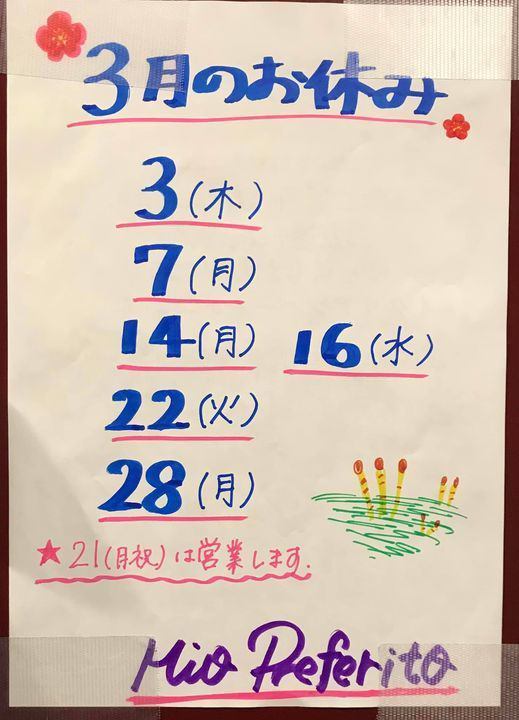 3月のお休み
3(木)
7(月)
14(月) 16(水)
22(火)
28(月)
★21(月祝)は営業します.
Mio Preferito